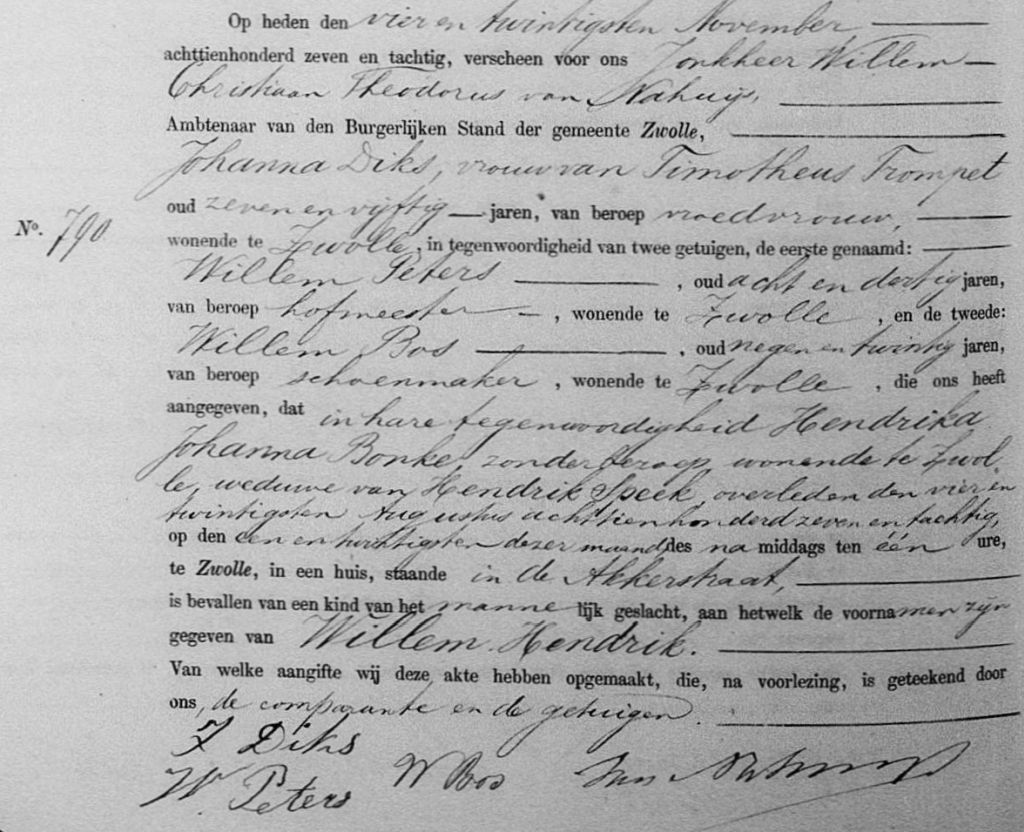 Op heden den vier en twintigsten November
achttienhonderd zeven en tachtig, verscheen voor ons Jonkheer Willem
Christiaan Theodorus van Nahuijs,
Ambtenaar van den Burgerlijken Stand der gemeente Zwolle,
Johanna Diks, vrouw van Timotheus Trompet
oud zeven en vijftig jaren, van beroep vroedvrouw,
No. 790
wonende te Zwolle, in tegenwoordigheid van twee getuigen, de eerste genaamd:
Willem Peters, oud acht en dertig jaren,
van beroep hofmeester, wonende te Zwolle, en de tweede:
Willem Bos, oud negen en twintig jaren,
van beroep schoenmaker, wonende te Zwolle, die ons heeft
aangegeven, dat in hare tegenwoordigheid Hendrika
Johanna Bonke, zonder beroep, wonende te Zwol-
le, weduwe van Hendrik Speek, overleden den vier en
twintigsten Augustus achttienhonderd zeven en tachtig,
op den een en twintigsten dezer maand des na middags ten één ure,
te Zwolle, in een huis, staande in de Akkerstraat,
is bevallen van een kind van het mannelijk geslacht, aan hetwelk de voornamen zijn
gegeven van Willem Hendrik.
Van welke aangifte wij deze akte hebben opgemaakt, die, na voorlezing, is geteekend door
ons, de comparante en de getuigen.
J Diks
W. Peters W Bos van Nahuijs